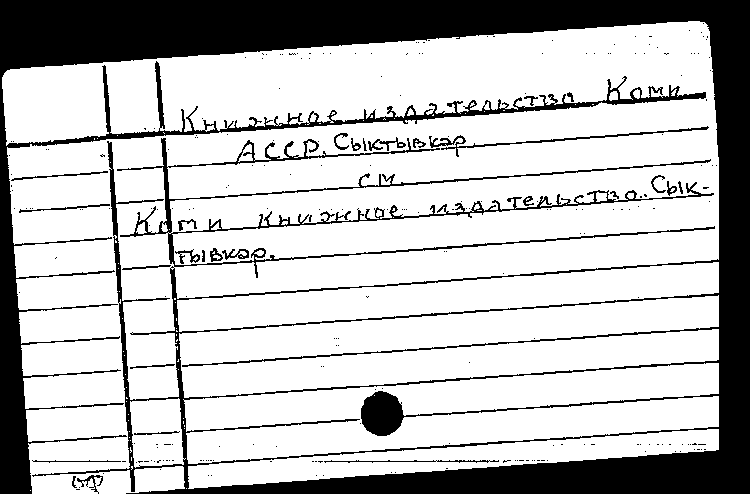 Книжное издательство Коми
АССР. Сыктывкар
см.
Коми книжное издательство. Сык-
тывкар.